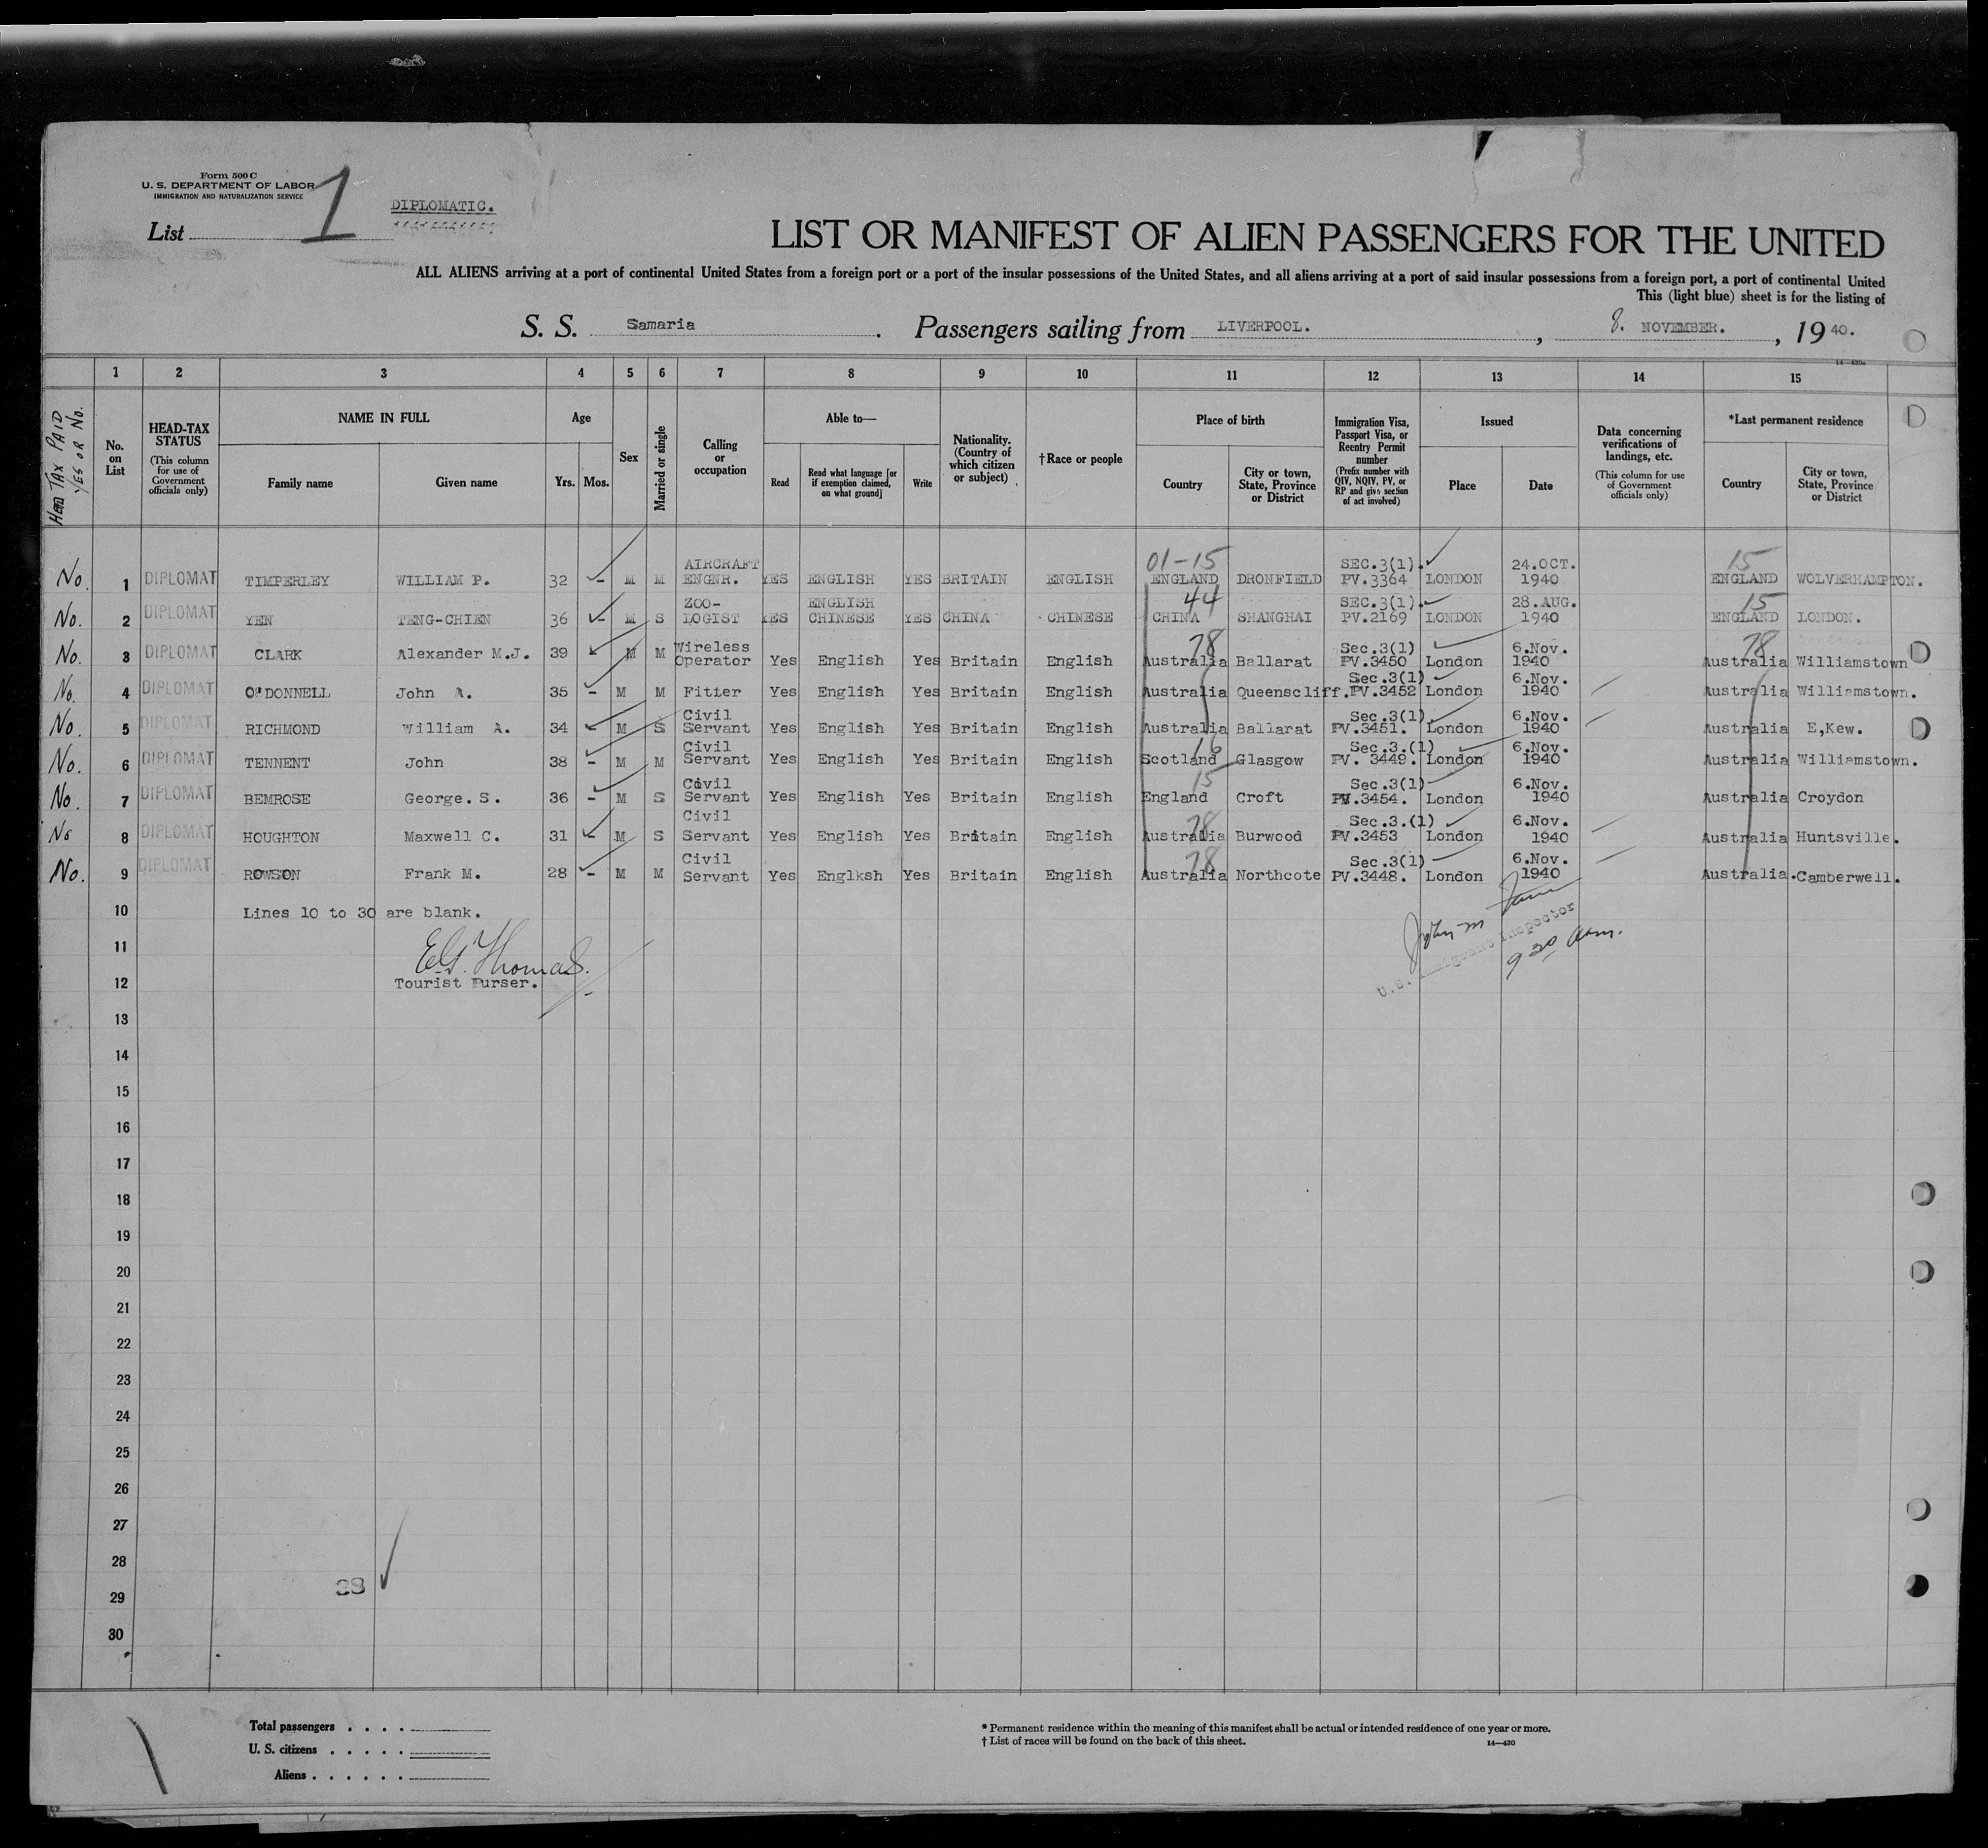 Form 500 C
U. S. DEPARTMENT OF LABOR
IMMIGRATION AND NATURALIZATION SERVICE
List 1
DIPLOMATIC.
LIST OR MANIFEST OF ALIEN PASSENGERS FOR THE UNITED
ALL ALIENS arriving at a port of continental United States from a foreign port or a port of the insular possessions of the United States, and all aliens arriving at a port of said insular possessions from a foreign port, a port of continental United
This (light blue) sheet is for the listing of
S. S. Samaria. Passengers sailing from LIVERPOOL., 8. NOVEMBER., 19 40.
14—430a
1 2 3 4 5 6 7 8 9 10 11 12 13 14 15
HEAD TAX PAID YES OR NO.
No. on List
HEAD-TAX STATUS
(This column for use of Government officials only)
NAME IN FULL
Family name Given name
Age
Yrs. Mos.
Sex
Married or single
Calling or occupation
Able to—
Read
Read what language [or if exemption claimed, on what ground]
Write
Nationality. (Country of which citizen or subject)
†Race or people
Place of birth
Country
City or town, State, Province or District
Immigration Visa, Passport Visa, or Reentry Permit number
(Prefix number with QIV, NQIV, PV, or RP and give section of act involved)
Issued
Place Date
Data concerning verifications of landings, etc.
(This column for use of Government officials only)
*Last permanent residence
Country
City or town, State, Province or District
AIRCRAFT 01-15 SEC.3(1). 24.OCT. 15
No. 1 DIPLOMAT TIMPERLEY WILLIAM P. 32 - M M ENGNR. YES ENGLISH YES BRITAIN ENGLISH ENGLAND DRONFIELD PV.3364 LONDON 1940 ENGLAND WOLVERHAMPTON.
ZOO- ENGLISH 44 SEC.3(1). 28.AUG. 15
No. 2 DIPLOMAT YEN TENG-CHIEN 36 - M S LOGIST YES CHINESE YES CHINA CHINESE CHINA SHANGHAI PV.2169 LONDON 1940 ENGLAND LONDON.
Wireless 78 Sec.3(1) 6.Nov. 78
No. 3 DIPLOMAT CLARK Alexander M.J. 39 M M Operator Yes English Yes Britain English Australia Ballarat PV.3450 London 1940 Australia Williamstown
Sec.3(1) 6.Nov.
No. 4 DIPLOMAT O'DONNELL John A. 35 - M M Fitter Yes English Yes Britain English Australia Queenscliff. PV.3452 London 1940 Australia Williamstown.
Civil Sec.3(1) 6.Nov.
No. 5 DIPLOMAT RICHMOND William A. 34 - M S Servant Yes English Yes Britain English Australia Ballarat PV.3451. London 1940 Australia E,Kew.
Civil 16 Sec.3.(1) 6.Nov.
No. 6 DIPLOMAT TENNENT John 38 - M M Servant Yes English Yes Britain English Scotland Glasgow PV. 3449. London 1940 Australia Williamstown.
Civil 15 Sec.3(1) 6.Nov.
No. 7 DIPLOMAT BEMROSE George. S. 36 - M S Servant Yes English Yes Britain English England Croft PV.3454. London 1940 Australia Croydon
Civil 78 Sec.3.(1) 6.Nov.
No 8 DIPLOMAT HOUGHTON Maxwell C. 31 - M S Servant Yes English Yes Britain English Australia Burwood PV.3453 London 1940 Australia Huntsville.
Civil 78 Sec.3(1) 6.Nov.
No. 9 DIPLOMAT ROWSON Frank M. 28 - M M Servant Yes Englksh Yes Britain English Australia Northcote PV.3448. London 1940 Australia. Camberwell.
10 Lines 10 to 30 are blank.
John M
U.S. Immigrant Inspector
9 20 am.
11 E.G. Thomas.
12 Tourist Purser.
13
14
15
16
17
18
19
20
21
22
23
24
25
26
27
28
29
30
Total passengers
U. S. citizens
Aliens
* Permanent residence within the meaning of this manifest shall be actual or intended residence of one year or more.
† List of races will be found on the back of this sheet.
14—430